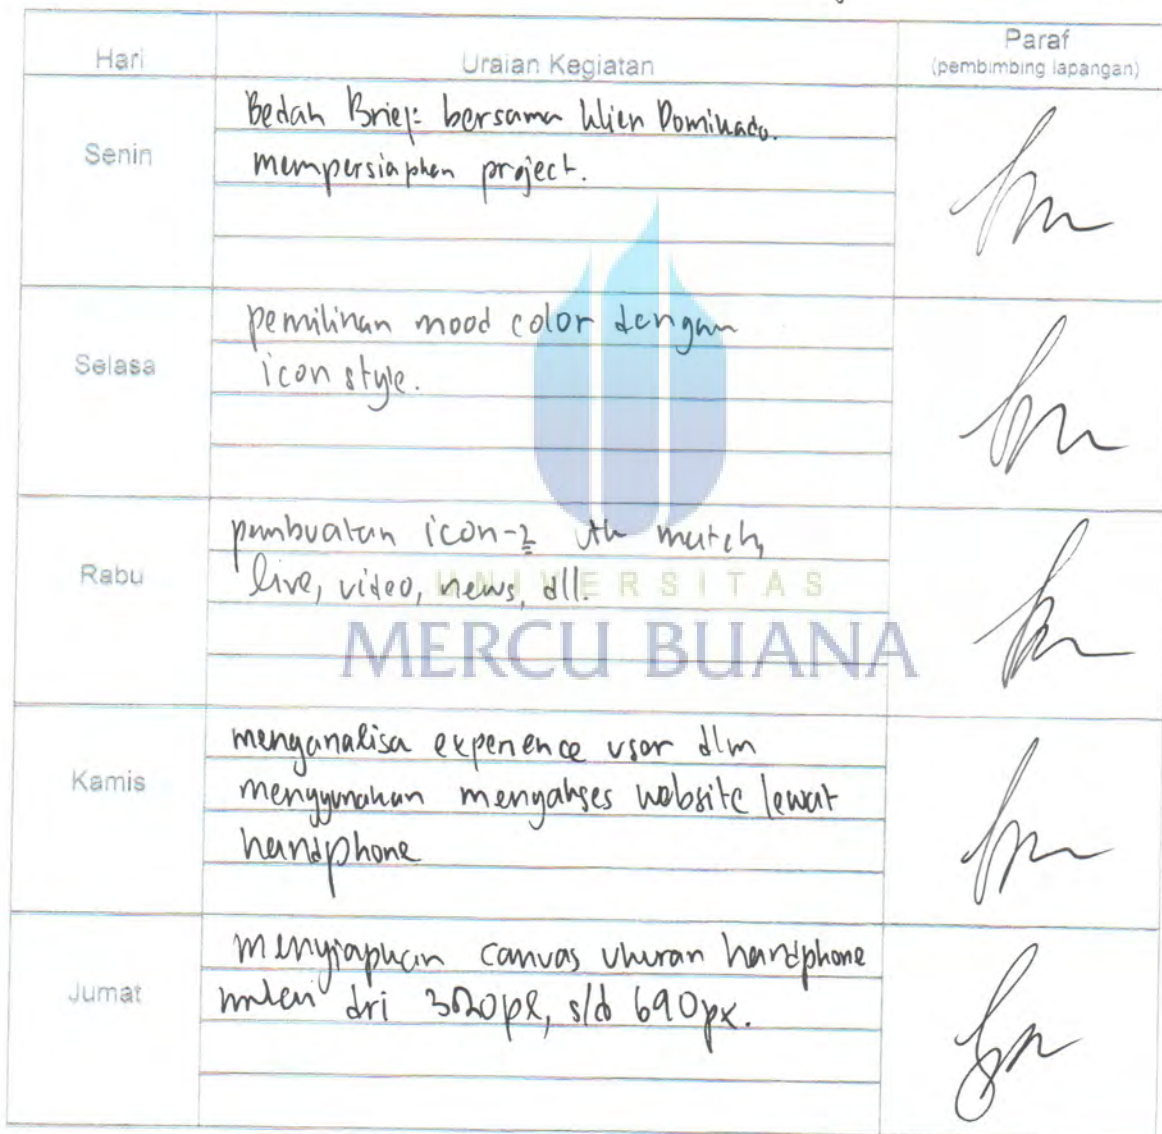 Hari Uraian Kegiatan Paraf
(pembimbing lapangan)
Senin
Bedah Brief: bersama klien Dominado.
mempersiapkan project.
Selasa
pemilihan mood color dengan
icon style.
Rabu
pembuatan icon-2 utk match,
live, video, news, dll.
UNIVERSITAS
MERCU BUANA
Kamis
menganalisa experience user dlm
menggunakan mengakses website lewat
handphone
Jumat
menyiapkan canvas ukuran handphone
mulai dri px, s/d 690px.